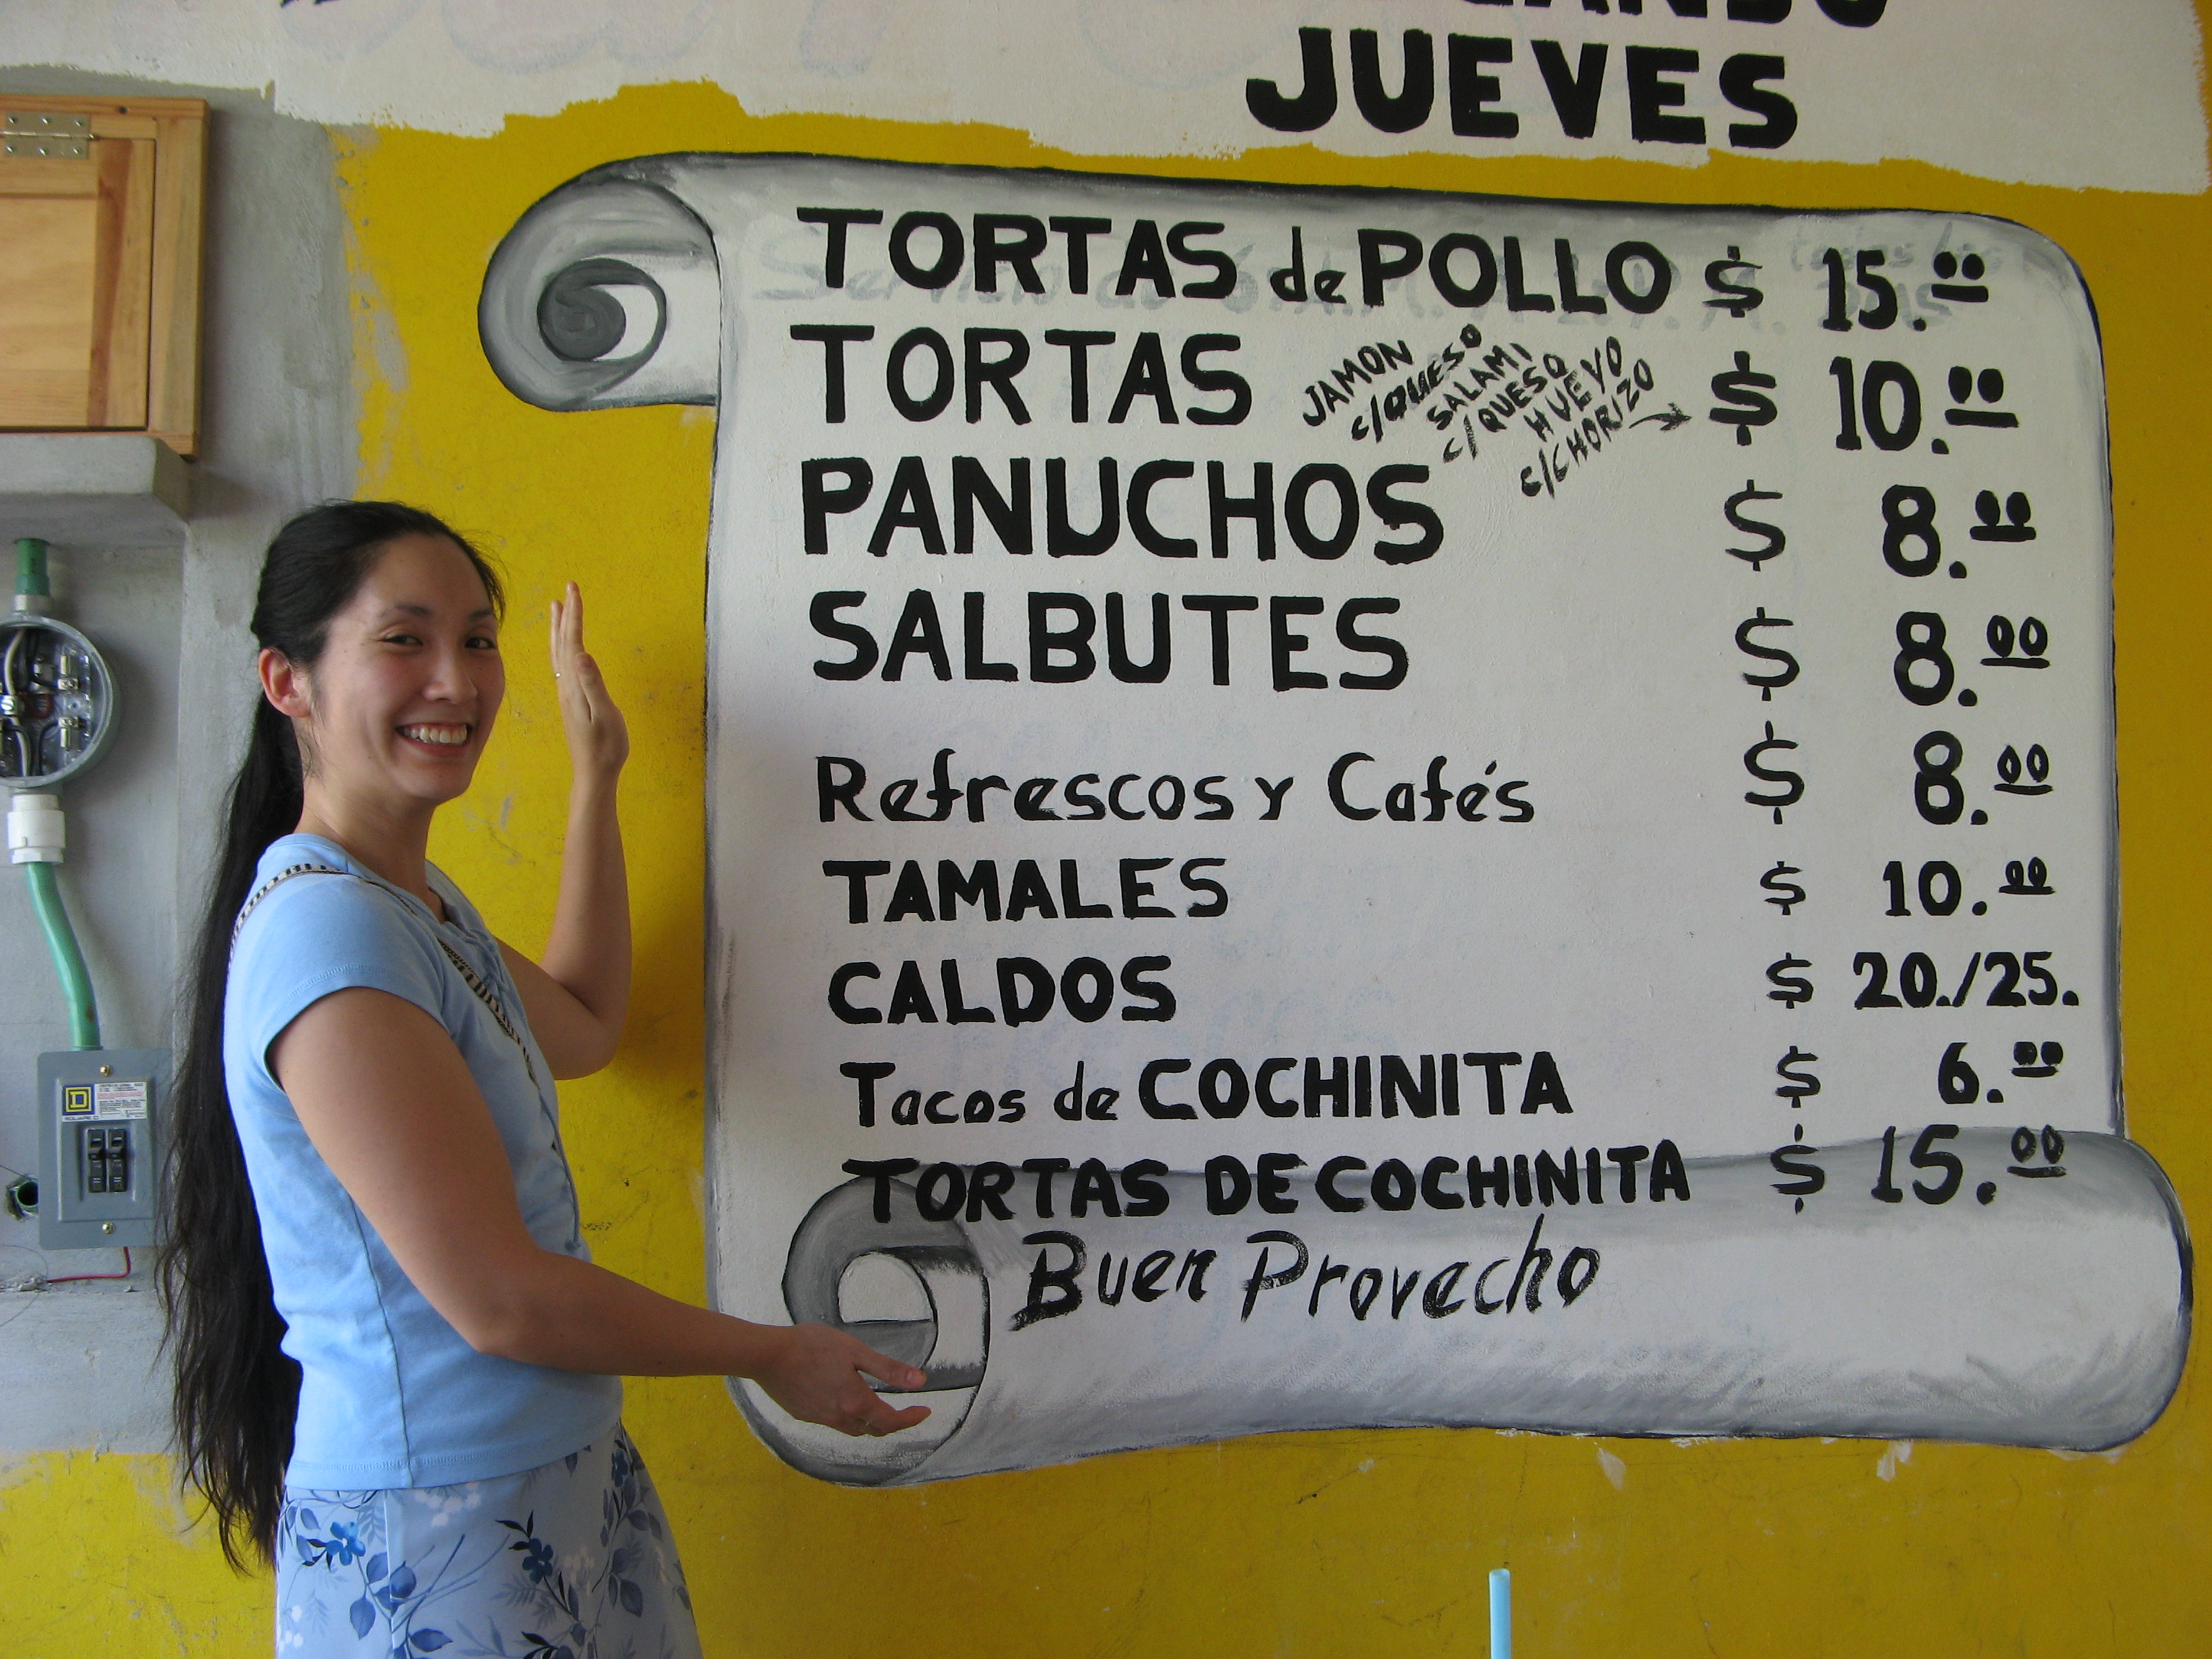 JUEVES
TORTAS de POLLO $ 15.00
TORTAS JAMON C/QUESO SALAMI C/QUESO HUEVO C/CHORIZO $ 10.00
PANUCHOS $ 8.00
SALBUTES $ 8.00
Refrescos y Cafés $ 8.00
TAMALES $ 10.00
CALDOS $ 20./25.
Tacos de COCHINITA $ 6.00
TORTAS DE COCHINITA $ 15.00
Buen Provecho
SQUARE D